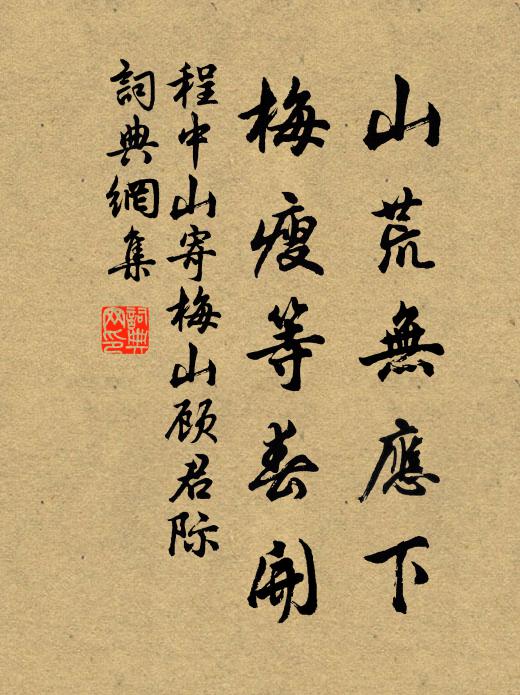 山荒無應下
梅瘦等春開
程中山寄梅山顾君际
詞典網集
詞典网印